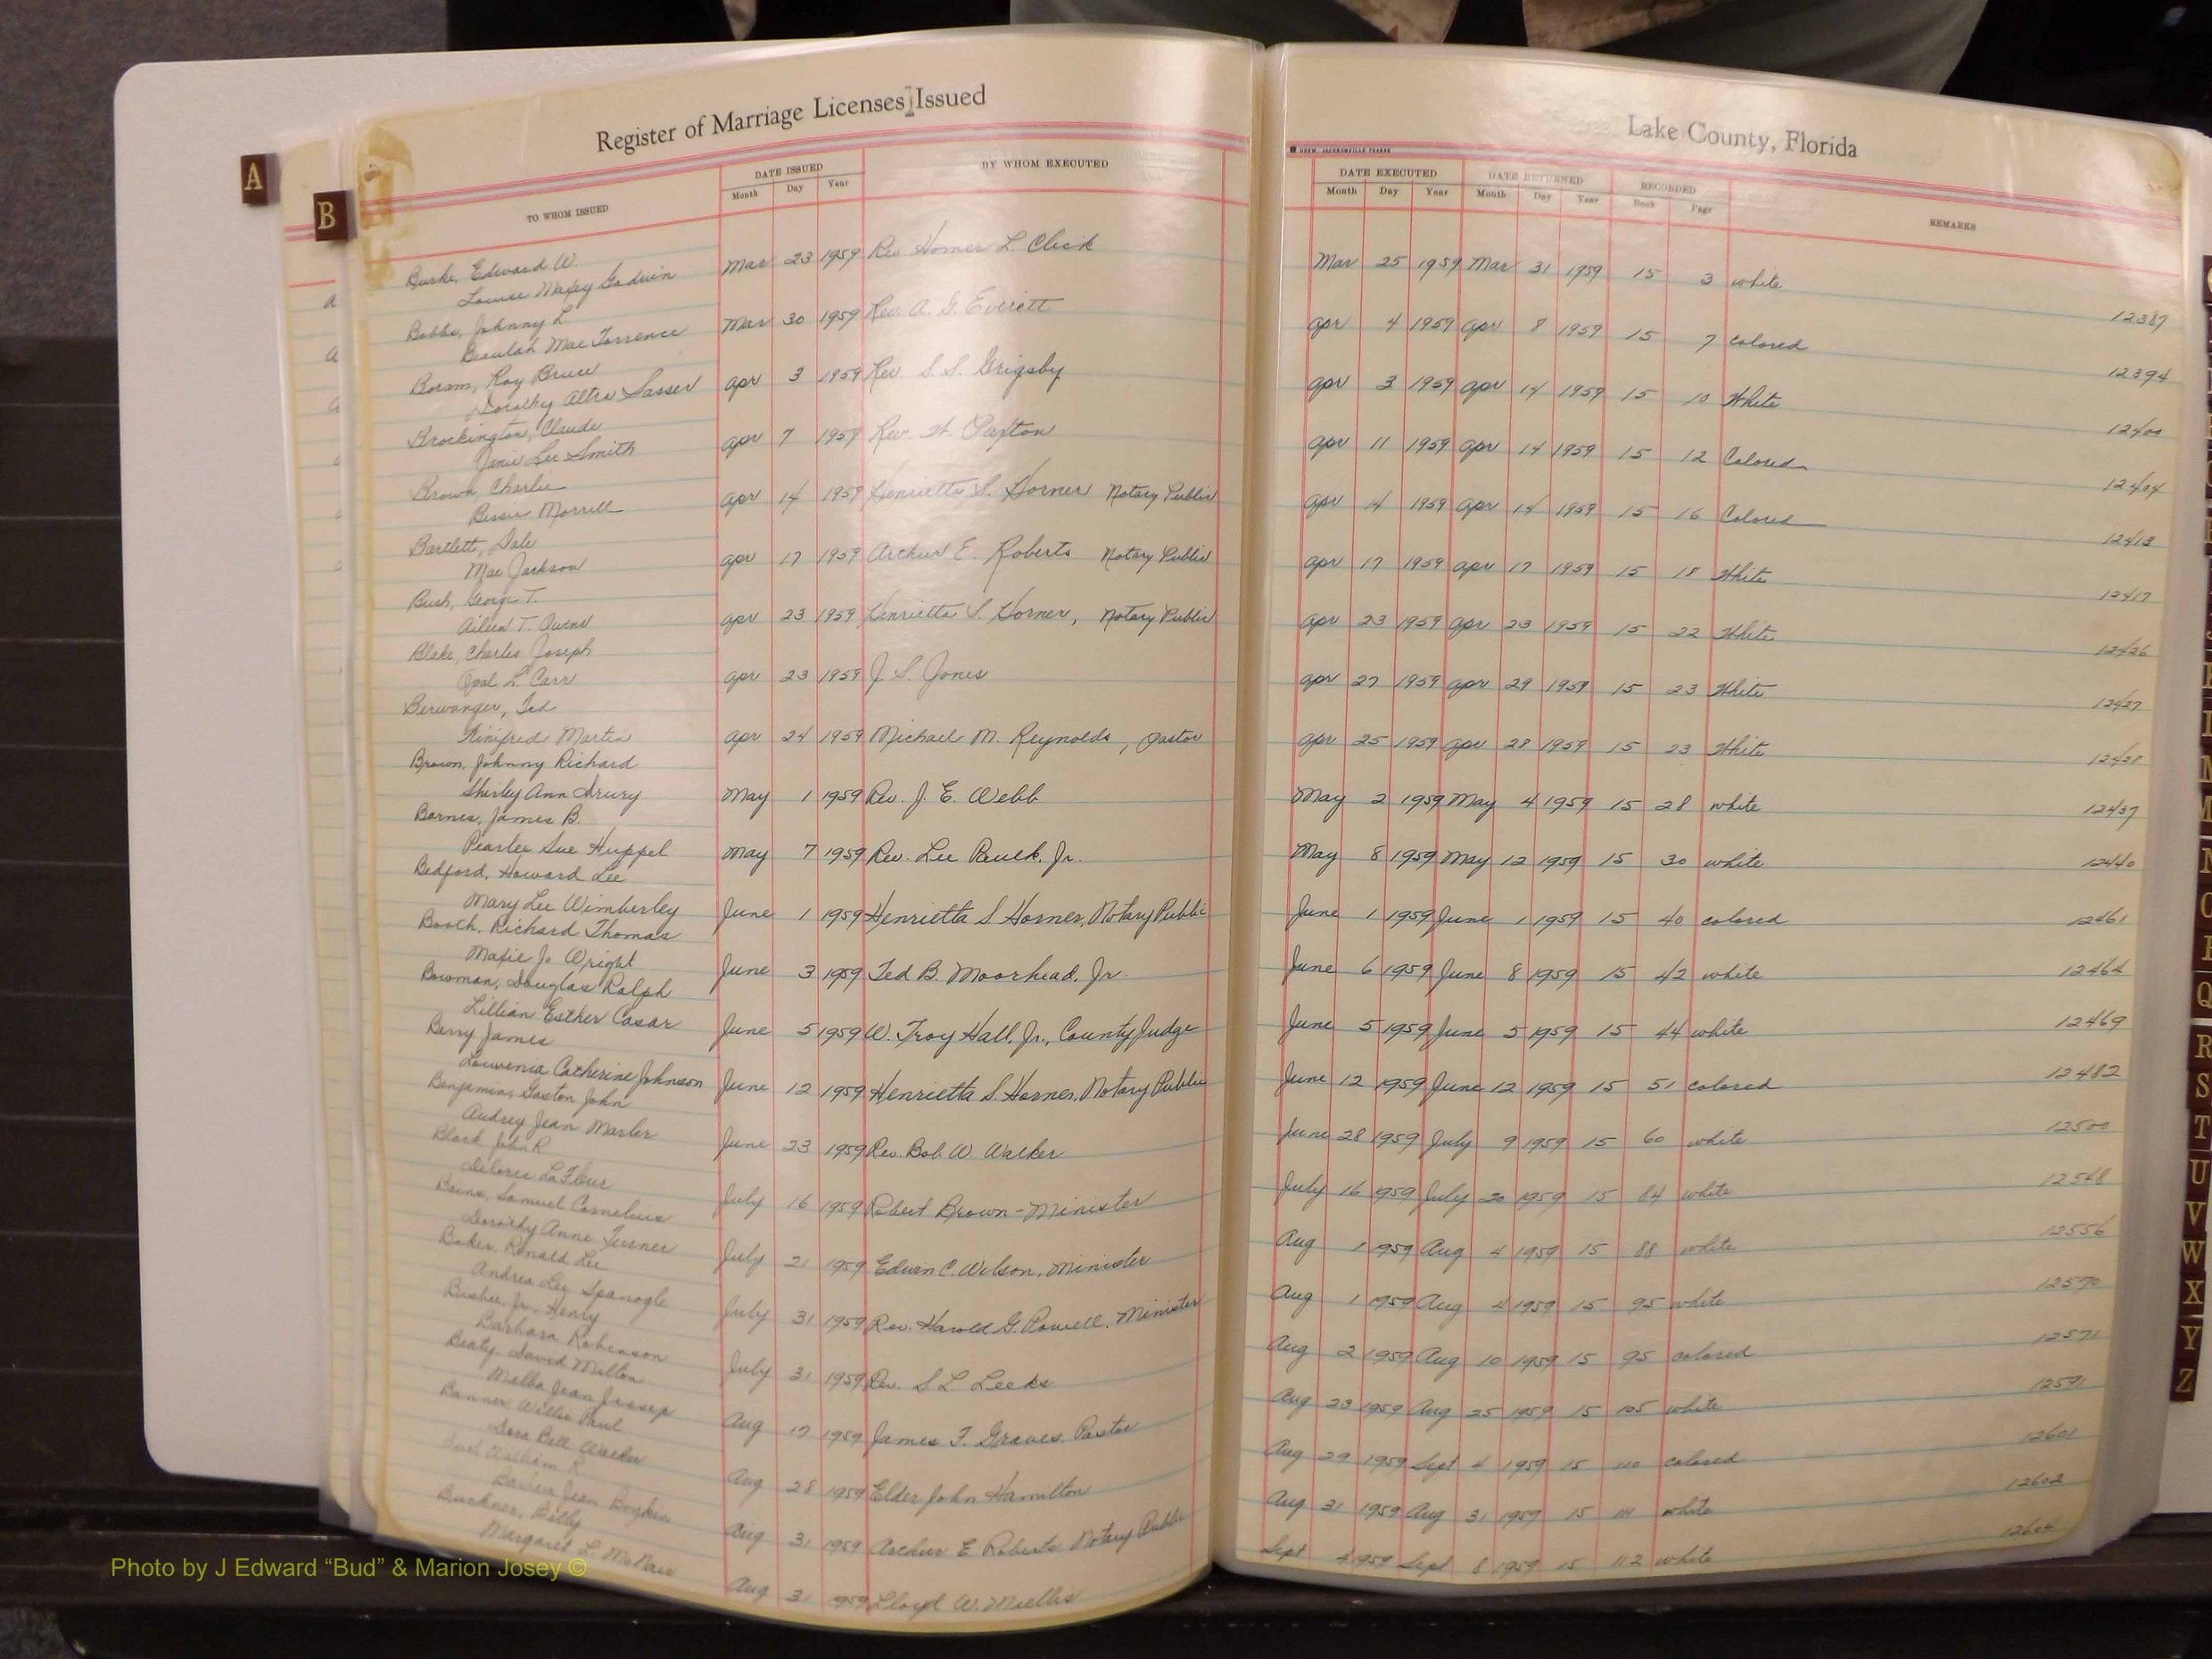 Register of Marriage Licenses Issued
Lake County, Florida
DREW, JACKSONVILLE
A
B
TO WHOM ISSUED
DATE ISSUED
Month Day Year
BY WHOM EXECUTED
DATE EXECUTED
Month Day Year
DATE RETURNED
Month Day Year
RECORDED
Book Page
REMARKS
Burke, Edward W.
Louise Maxey Godwin Mar 23 1959 Rev Homer L. Click Mar 25 1959 Mar 31 1959 15 3 white 12387
Bobbs, Johnny L
Beaulah Mae Torrence Mar 30 1959 Rev. A. G. Everett apr 4 1959 apr 8 1959 15 7 colored 12394
Roy Bruce
Dorothy Altra Sasser apr 3 1959 Rev. S. S. Grigsby apr 3 1959 apr 14 1959 15 10 White 12400
Brockington, Claude
Janie Lee Smith apr 7 1959 Rev. H. Paxton apr 11 1959 apr 14 1959 15 12 Colored 12404
Brown, Charlie
Bessie Morrell apr 14 1959 Henrietta S. Horner Notary Public apr 14 1959 apr 14 1959 15 16 Colored 12413
Bartlett, Dale
Mae Jackson apr 17 1959 Arthur E. Roberts Notary Public apr 17 1959 apr 17 1959 15 18 White 12417
Bush, George T.
Aileen T. Owens apr 23 1959 Henrietta S. Horner, Notary Public apr 23 1959 apr 23 1959 15 22 White 12426
Blake, Charles Joseph
Opal L Carr apr 23 1959 J. S. Jones apr 27 1959 apr 29 1959 15 23 White 12427
Berwanger, Ted
Winifred Martin apr 24 1959 Michael M. Reynolds, Pastor apr 25 1959 apr 28 1959 15 23 White 12428
Brown, Johnny Richard
Shirley Ann Drury May 1 1959 Rev. J. E. Webb May 2 1959 May 4 1959 15 28 white 12437
Barnes, James B.
Peartee Sue Huppel May 7 1959 Rev. Lee Paulk, Jr. May 8 1959 May 12 1959 15 30 white 12440
Bedford, Howard Lee
Mary Lee Wimberley June 1 1959 Henrietta S. Horner, Notary Public June 1 1959 June 1 1959 15 40 colored 12461
Booth, Richard Thomas
Maxie Jo Wright June 3 1959 Ted B. Moorhead, Jr. June 6 1959 June 8 1959 15 42 white 12464
Bowman, Douglas Ralph
Lillian Esther Casar June 5 1959 W. Troy Hall, Jr., County Judge June 5 1959 June 5 1959 15 44 white 12469
Berry, James
Louvenia Catherine Johnson June 12 1959 Henrietta S. Horner, Notary Public June 12 1959 June 12 1959 15 51 colored 12482
Benjamin, Gaston John
Audrey Jean Marler June 23 1959 Rev. Bob W. Walker June 28 1959 July 9 1959 15 60 white 12500
Black, John R
Delores LaFleur July 16 1959 Robert Brown - Minister July 16 1959 July 20 1959 15 84 white 12548
Samuel Cornelius
Dorothy Anne Turner July 21 1959 Edwin C. Wilson, Minister Aug 1 1959 Aug 4 1959 15 88 white 12556
Baker, Ronald Lee
Andrea Lee Spanogle July 31 1959 Rev. Harold G. Powell, Minister Aug 1 1959 Aug 4 1959 15 95 white 12570
Bisbee, Jr., Henry
Barbara Robinson July 31 1959 Rev. S L. Leeks Aug 2 1959 Aug 10 1959 15 95 colored 12571
Beaty, David Milton
Melba Jean Jessep Aug 17 1959 James F. Graves, Pastor Aug 23 1959 Aug 25 1959 15 105 white 12591
Banner, Willie Paul
Dora Bell Walker Aug 28 1959 Elder John Hamilton Aug 29 1959 Sept 4 1959 15 110 colored 12601
William R.
Barbara Jean Boykin Aug 31 1959 Arthur E Roberts Notary Public Aug 31 1959 Aug 31 1959 15 111 white 12602
Buckner, Billy
Margaret L. McNair Aug 31 1959 Lloyd W. Sept 4 1959 Sept 8 1959 15 112 white 12604
Q
R
S
T
U
V
W
X
Y
Z
Photo by J Edward “Bud” & Marion Josey ©